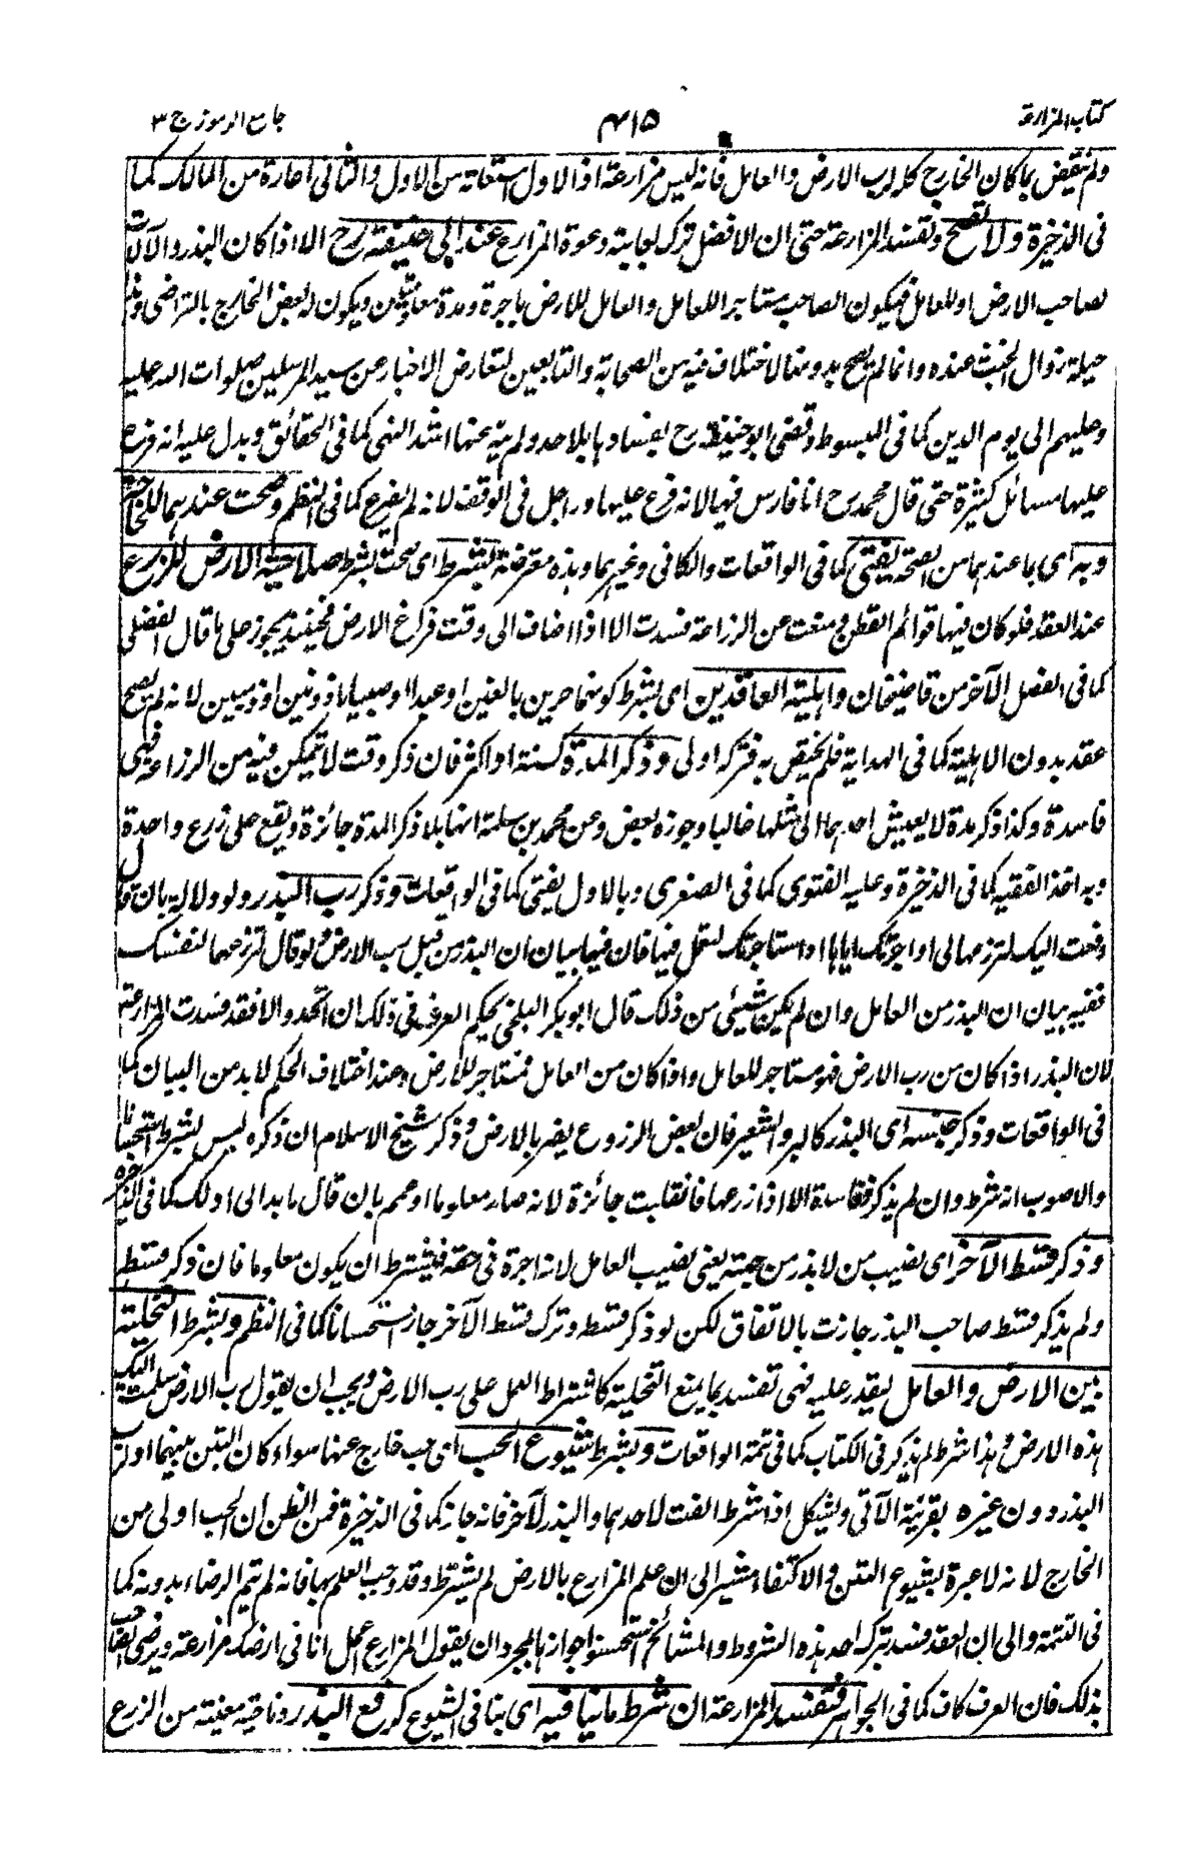 كتاب المزارعة
٤١٥
جامع الرموز ج ٣
ولم ينتقض بما كان الخارج كله لرب الارض والعامل فانه ليس مزارعة اذ الاول استعانة من الاول والثانى اعارة من المالك كما
فى الذخيرة ولا تصح وتفسد المزارعة حتى ان الافضل ترك اجابة دعوة المزارع عند ابى حنيفة رح الا اذا كان البذر والآلات
لصاحب الارض او للعامل فيكون الصاحب مستاجرا للعامل والعامل للارض باجرة ومدة معلومتين ويكون له بعض الخارج بالتراضى وهذا
حيلة زوال الخبث عنده وانما لم يصح بدونها لاختلاف فيه من الصحابة والتابعين لتعارض الاخبار عن سيد المرسلين صلوات الله عليه
وعليهم الى يوم الدين كما فى المبسوط وقضى ابو حنيفة رح بفسادها بلا حد ولم ينه عنها اشد النهى كما فى الحقائق ويدل عليه انه فرع
عليها مسائل كثيرة حتى قال محمد رح انا فارس فيها لانه فرع عليها وراجل فى الوقف لانه لم يفرع كما فى النظم وصحت عندهما للحاجة
وبه اى بما عندهما من الصحة يفتى كما فى الواقعات والكافى وغيرهما وهذه معترضة بشرط اى صحت بشرط صلاحية الارض للزرع
عند العقد فلو كان فيها قوائم القطن منعت عن الزراعة فسدت الا اذا اضاف الى وقت فراغ الارض فحينئذ يجوز على ما قال الفضلى
كما فى الفصل الآخر من قاضيخان واهلية العاقدين اى بشرط كونهما حرين بالغين او عبدا او صبيا ماذونين او ذميين لانه لم يصح
عقد بدون الاهلية كما فى الهداية فلم يختص به فتركه اولى وذكر المدة كسنة او اكثر فان ذكر وقت لا يتمكن فيه من الزراعة فهى
فاسدة وكذا ذكر مدة لا يعيش احدهما الى مثلها غالبا وجوزه بعض وعن محمد بن سلمة انها بلا ذكر المدة جائزة ويقع على زرع واحدة
وبه اخذ الفقيه كما فى الذخيرة وعليه الفتوى كما فى الصغرى وبالاول يفتى كما فى الواقعات وذكر رب البذر ولو دلالة بان قال
دفعت اليك لتزرعها لى او اجرتك اياها او استاجرتك لتعمل فيها فان فيها بيان ان البذر من قبل رب الارض ولو قال لتزرعها لنفسك
ففيه بيان ان البذر من العامل وان لم يكن شيئى من ذلك قال ابو بكر البلخى يحكم العرف فى ذلك ان اتحد والا فقد فسدت المزارعة
لان البذر اذا كان من رب الارض فهو مستاجر للعامل واذا كان من العامل فمستاجر للارض وعند اختلاف الحكم لا بد من البيان كما
فى الواقعات وذكر جنسه اى البذر كالبر والشعير فان بعض الزروع يضر بالارض وذكر شيخ الاسلام ان ذكره ليس بشرط استحسانا
والاصوب انه شرط وان لم يذكر ففاسدة الا اذا زرعها فانقلبت جائزة لانه صار معلوما او عمم بان قال ما بدا لى او لك كما فى الذخيرة
وذكر قسط الآخر اى نصيب من لا بذر من جهته يعنى نصيب العامل لانه اجرة فى حقه فيشترط ان يكون معلوما فان ذكر قسطه
ولم يذكر قسط صاحب البذر جازت بالاتفاق لكن لو ذكر قسطه وترك قسط الآخر جاز استحسانا كما فى النظم وبشرط التخلية
بين الارض والعامل ليقدر عليه فهى تفسد بما يمنع التخلية كاشتراط العمل على رب الارض ويجب ان يقول رب الارض سلمت اليك
هذه الارض وهذا شرط لم يذكر فى الكتاب كما فى تتمة الواقعات وبشرط شيوع الحب اى حب خارج عنها سواء كان التبن بينهما او لرب
البذر دون غيره بقرينة الآتى ويشكل اذا شرط القت لاحدهما والبذر لآخر فانه جاز كما فى الذخيرة فمن الظن ان الحب اولى من
الخارج لانه لا عبرة بشيوع التبن وفى الاكتفاء مشير الى ان علم المزارع بالارض لم يشترط وقد وجب العلم بها فانه لم يتم الرضاء بدونه كما
فى التتمة والى ان العقد فسد بترك احد هذه الشروط والمشائخ استحسنوا جوازها بمجرد ان يقول المزارع اعمل انا فى ارضك مزارعة ورضى صاحب
بذلك فان العرف كاف كما فى الجواهر فتفسد المزارعة ان شرط ما نيا فيه اى ينافى الشيوع كرفع البذر وناحية معينة من الزرع